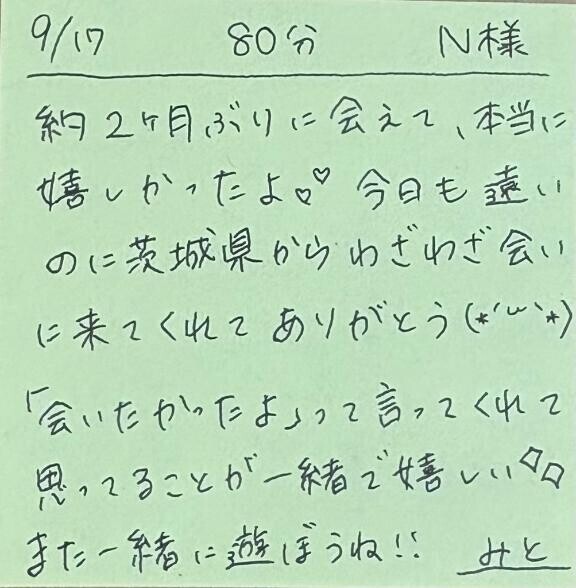 9/17 80分 N様
約2ヶ月ぶりに会えて、本当に
嬉しかったよ♡♡ 今日も遠い
のに茨城県からわざわざ会い
に来てくれてありがとう(*´ω`*)
「会いたかったよ」って言ってくれて
思ってることが一緒で嬉しい◇◇
また一緒に遊ぼうね!! みと